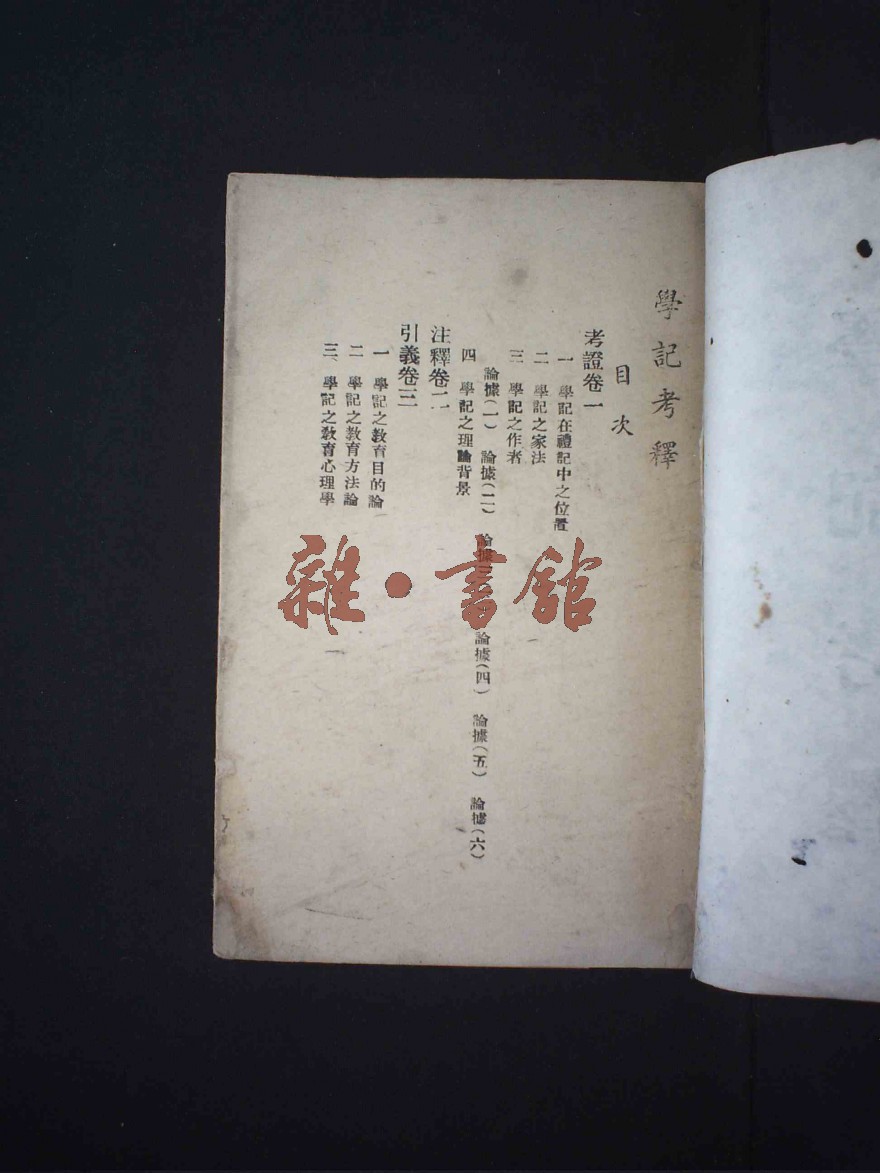 學記考釋
目次
考證卷一
一 學記在禮記中之位置
二 學記之家法
三 學記之作者
論據(一) 論據(二) 論據(三) 論據(四) 論據(五) 論據(六)
四 學記之理論背景
注釋卷二
引義卷三
一 學記之教育目的論
二 學記之教育方法論
三、學記之教育心理學
一
雜·書館